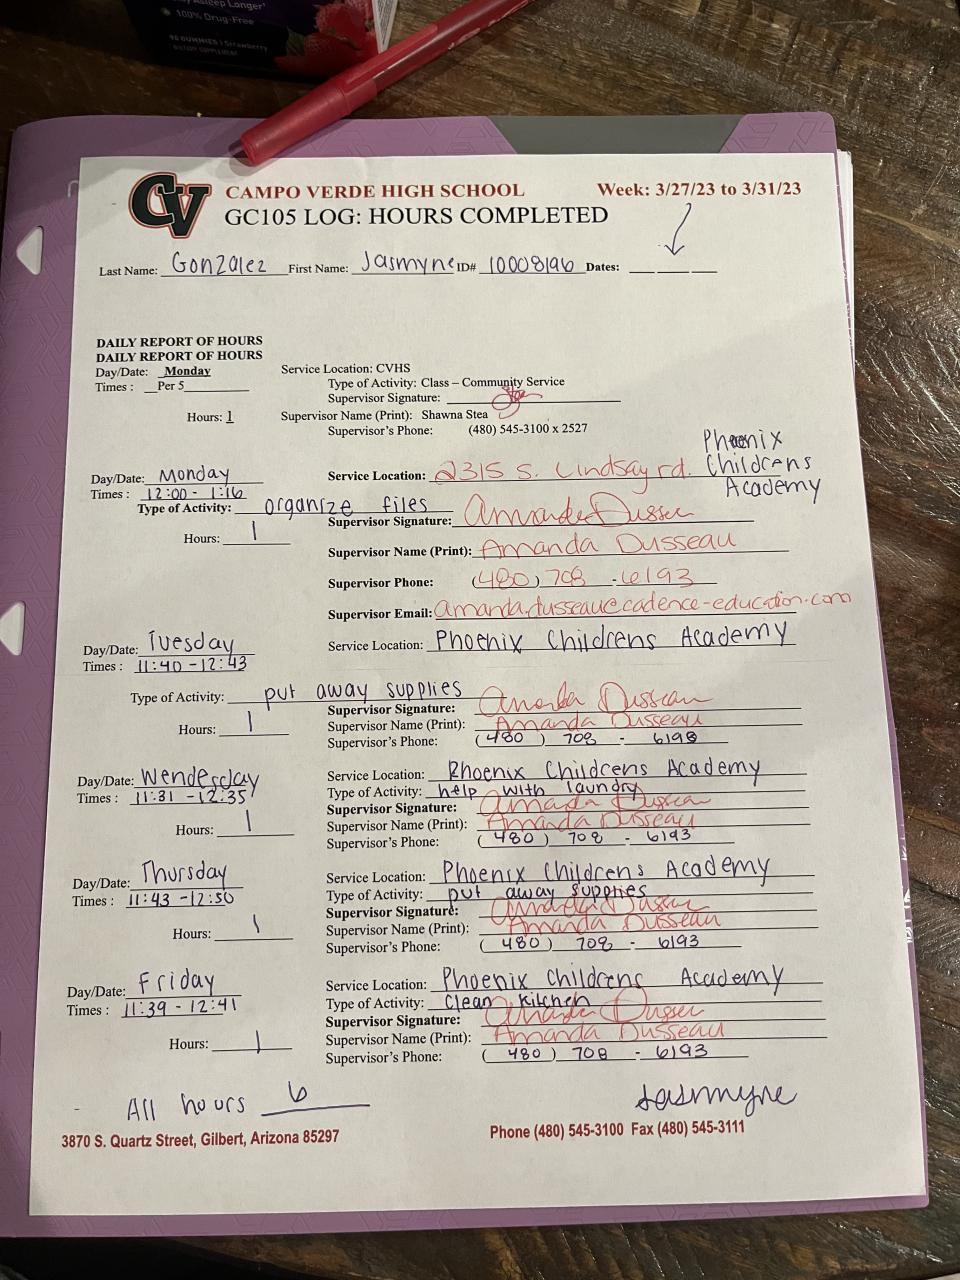 Asleep Longer*
100% Drug-Free
90 GUMMIES | Strawberry
DIETARY SUPPLEMENT
CV
CAMPO VERDE HIGH SCHOOL Week: 3/27/23 to 3/31/23
GC105 LOG: HOURS COMPLETED
Last Name: Gonzalez First Name: Jasmyne ID# 10008196 Dates:
DAILY REPORT OF HOURS
DAILY REPORT OF HOURS
Day/Date: Monday Service Location: CVHS
Times : Per 5 Type of Activity: Class – Community Service
Supervisor Signature:
Hours: 1 Supervisor Name (Print): Shawna Stea
Supervisor's Phone: (480) 545-3100 x 2527
Day/Date: Monday Service Location: 2315 S. Lindsay rd. Phoenix Childrens Academy
Times : 12:00 - 1:16
Type of Activity: organize files
Supervisor Signature: Amanda Dusseau
Hours: 1
Supervisor Name (Print): Amanda Dusseau
Supervisor Phone: (480) 708 - 6193
Supervisor Email: amanda.dusseau@cadence-education.com
Day/Date: Tuesday Service Location: Phoenix Childrens Academy
Times : 11:40 - 12:43
Type of Activity: put away supplies
Supervisor Signature: Amanda Dusseau
Hours: 1 Supervisor Name (Print): Amanda Dusseau
Supervisor's Phone: (480) 708 - 6198
Day/Date: Wendesday Service Location: Phoenix Childrens Academy
Times : 11:31 - 12:35 Type of Activity: help with laundry
Supervisor Signature: Amanda Dusseau
Hours: 1 Supervisor Name (Print): Amanda Dusseau
Supervisor's Phone: (480) 708 - 6193
Day/Date: Thursday Service Location: Phoenix Childrens Academy
Times : 11:43 - 12:50 Type of Activity: put away supplies
Supervisor Signature: Amanda Dusseau
Hours: 1 Supervisor Name (Print): Amanda Dusseau
Supervisor's Phone: (480) 708 - 6193
Day/Date: Friday Service Location: Phoenix Childrens Academy
Times : 11:39 - 12:41 Type of Activity: Clean kitchen
Supervisor Signature: Amanda Dusseau
Hours: 1 Supervisor Name (Print): Amanda Dusseau
Supervisor's Phone: (480) 708 - 6193
All hours 6 Jasmyne
3870 S. Quartz Street, Gilbert, Arizona 85297 Phone (480) 545-3100 Fax (480) 545-3111